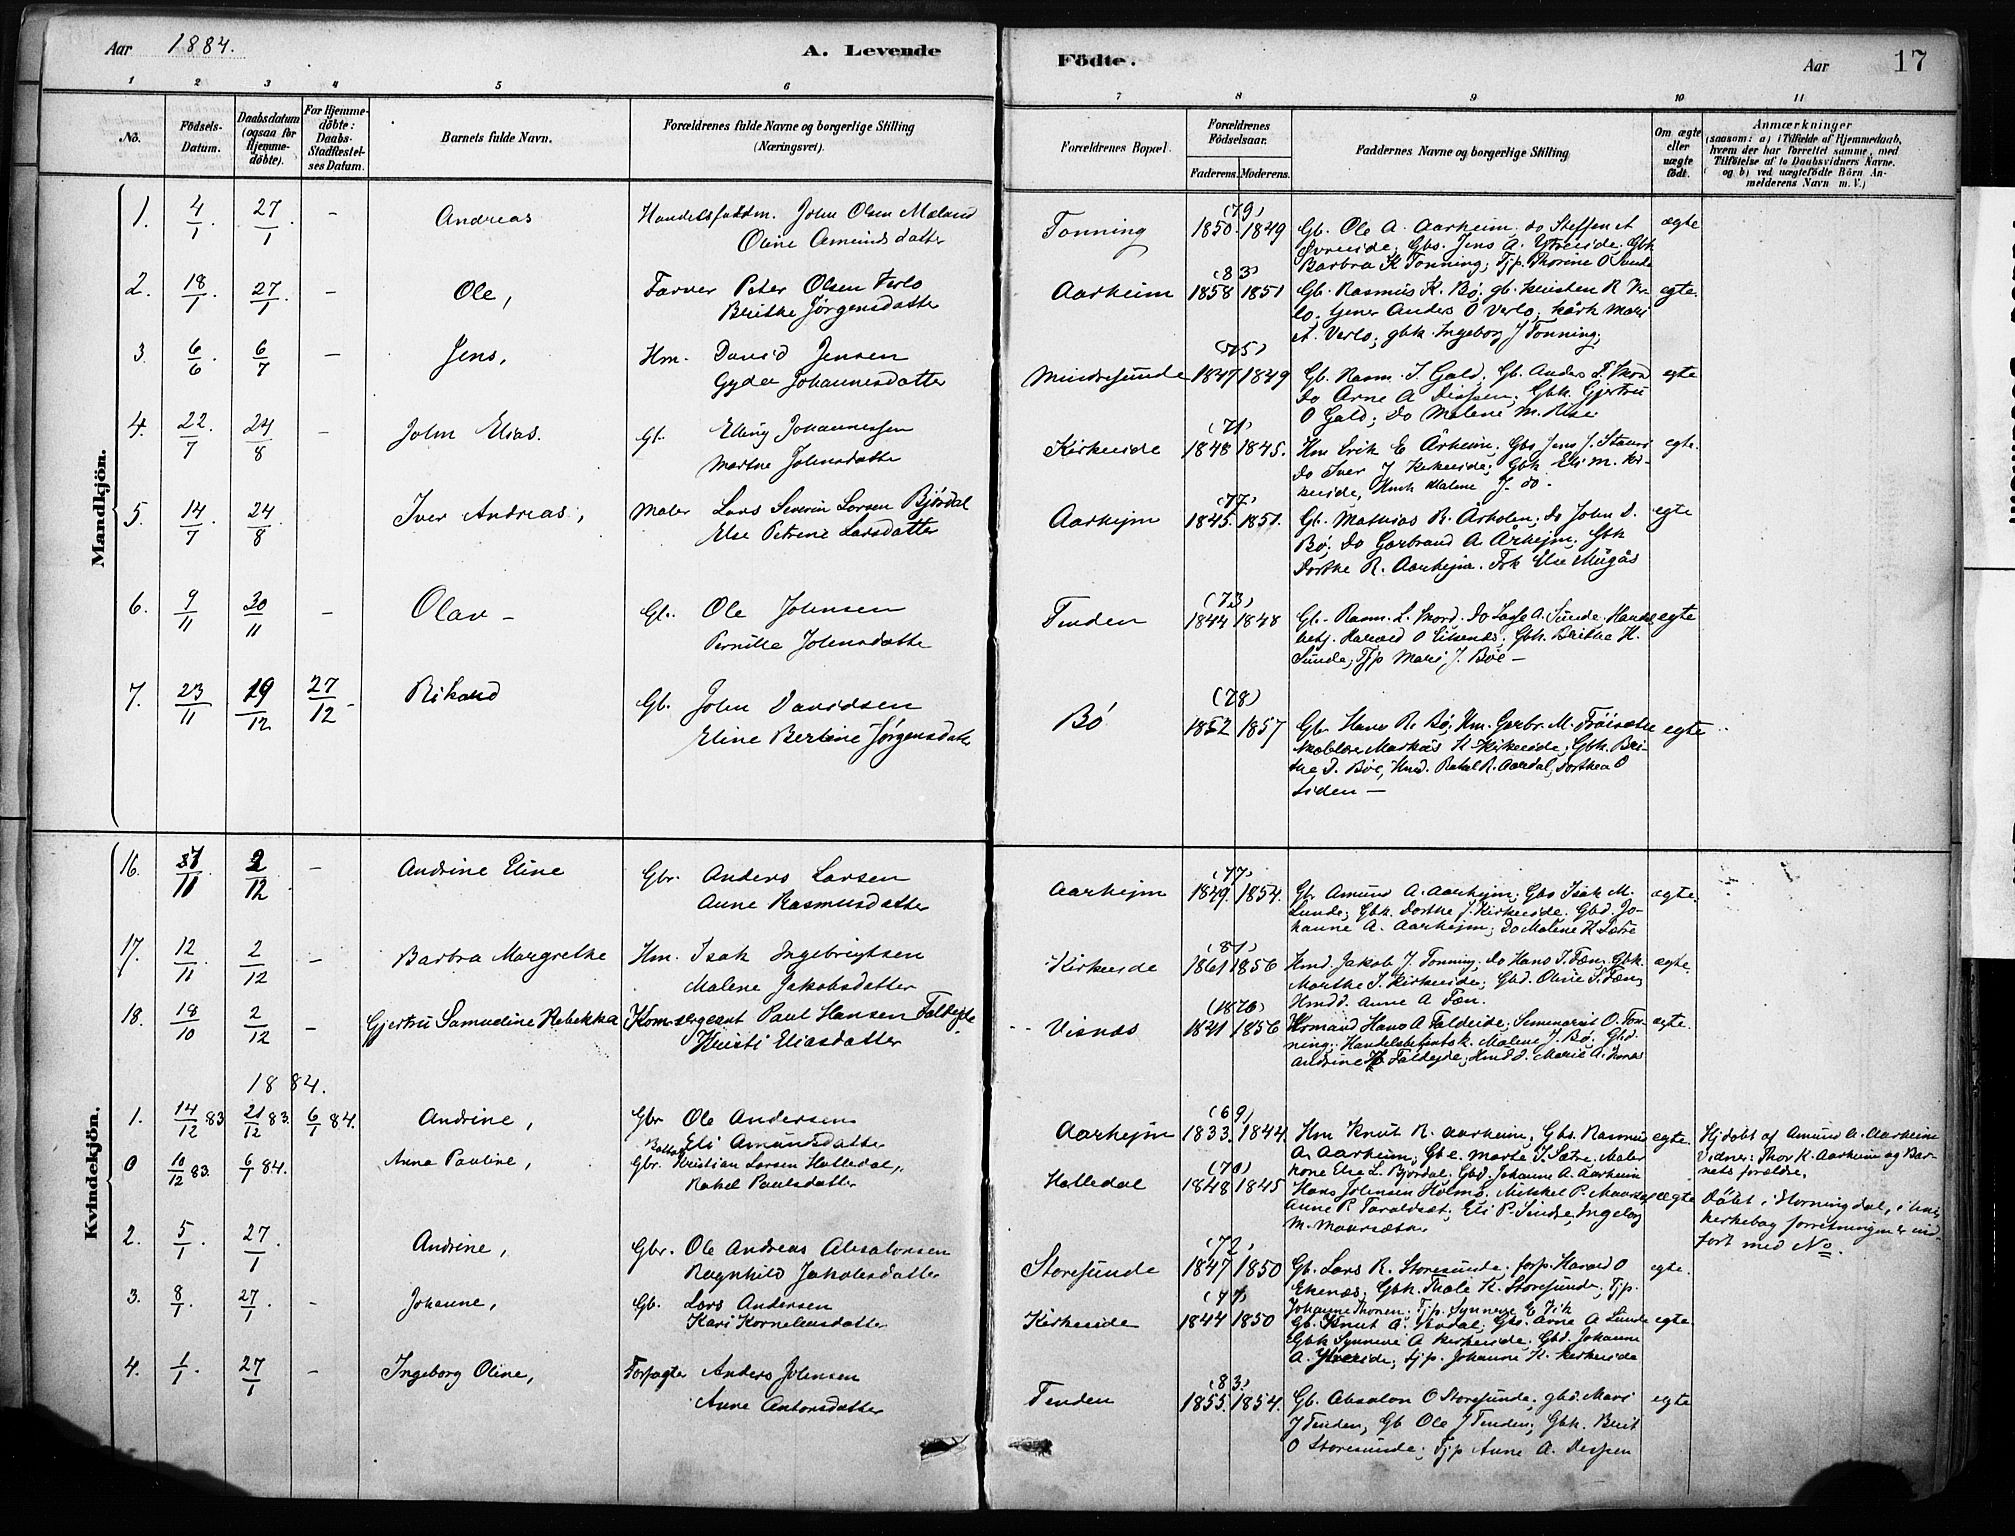 Aar 1884. A. Levende
Födte. Aar 17
1 2 3 4 5 6
7 8 9 10 11
No. Födsels-Datum. Daabsdatum (ogsaa for Hjemme-döbte). For Hjemme-döbte: Daabs-Stadfæstel-ses Datum. Barnets fulde Navn. Forældrenes fulde Navne og borgerlige Stilling (Næringsvei).
Forældrenes Bopæl. Forældrenes Födselsaar. Faderens. Moderens. Faddernes Navne og borgerlige Stilling Om ægte eller uægte födt. Anmærkninger
(saasom: a) i Tilfælde af Hjemmedaab, hvem der har forrettet samme, med Tilföielse af to Daabsvidners Navne. og b) ved uægtefödte Börn An-melderens Navn m. V.)
Mandkjön.
1. 4/1 27/1 - Andreas Handelsfuldm. John Olsen Mæland
Oline Amundsdatter
Tonning (79) 1850. 1849 Gb. Ole A. Aarheim, do Steffen A
Øvreeide; Gbs. Jens A. Ytreeide; Gbk
Barbra K Tonning; Tjp. Thorine O Sunde
ægte
2. 18/1 27/1 - Ole, Farver Peter Olsen Verlo
Brithe Jørgensdatter
Aarheim (83) 1858 1851 Gb. Rasmus K. Bø; gb. Kristen R Ver-
lo; Anders O Verlo; kårk Mari
A. Verlo; gbk. Ingeborg J Tonning;
egte.
3. 6/6 6/7 - Jens, Hm. David Jensen
Gyda Johannesdatter
Mindresunde (75) 1847 1849 Gb. Rasm. J. Gald; Gb. Anders
do Arne A Dispen; Gbk. Gjertru
O Gald; do Malene M. Rise
egte
4. 22/7 24/8 - John Elias. Gb. Elling Johannessen
Marthe Johnsdatter
Kirkeeide (71) 1848 1845. Hm Erik E Årheim; Gbs Jens J.
do Iver J Kirkeeide; Gbk Eli M. Kir-
keeide, Hmk Malene J. do.
egte.
5. 14/7 24/8 Iver Andreas, Maler Lars Severin Larsen Bjørdal
Else Petrine Larsdatter
Aarhejm (77) 1845. 1851. Gb. Mathias R. Årholen; do John D.
Bø; do Garbrand A. Århejm; Gbk
Dorthe R. Aarhejm. Frk Else Myrgås
egte
6. 9/11 30/11 - Olav - Gb. Ole Johnsen
Pernille Johnsdatter
Tenden (73) 1844 1848 Gb. Rasm. L. Skord. do A. Sunde. Handels
betj. Harald O Eikenæs. Gbk. Brithe H.
Sunde; Tjp Mari J. Bøe -
egte
7. 23/11 19/12 27/12 Rikard Gb. John Davidsen
Eline Bertine Jørgensdatter
Bø (78) 1852 1857 Gb. Hans R. Bø; Hm. Garbr. M. Frøisæth
Markus K Kirkeeide; Gbk. Bri-
the D. Bøe, Hmd. Rakel R. Aardal; Dorthea O
Liden -
egte
Kvindekjön.
16. /11 2/12 - Andrine Eline Gbr. Anders Larsen
Anne Rasmusdatter
Aarhejm (77) 1849. 1854. Gb. Amund A. Aarhejm; Gbs Isak M.
Sunde; Gbk. Dorthe J. Kirkeeide. Gbd. Jo-
hanne A. Aarhejm; do Malene K. Sætre
ægte.
17. 12/11 2/12 - Barbra Margrethe Hm. Isak Ingebrigtsen
Malene Jakobsdatter
Kirkeeide (81) 1861 1856 Hmd. Jakob J. Tonning; do Hans J. Fæn; Gbk.
Marthe J. Kirkeeide; Gbd. Oline S. Fæn,
Hmdd. Anne A Fæn.
ægte.
18. 18/10 2/12 - Gjertru Samueline Rebekka Kom-sergeant Paul Hansen Faldejde
Kristi Eliasdatter
Visnæs (1876) 1841 1856 Kårmand Hans A Faldeide; Seminarist O. Ton-
ning; Handelsbetjents k. Malene J. Bø; Gbd.
Andrine H Faldejde; Hmdd. Marie A.
ægte.
1884.
1. 14/12 83 21/12 83. 6/1 84. Andrine, Gbr Ole Andersen
Eli Amundsdatter
Aarhejm (69) 1833. 1844. Hm Knut R. Aarheim; Gbs. Rasmus
A. Aarheim; Gbe. Marte J. Sætre. Maler
kone Else L. Bjørdal; Gbd. Johanne A. Aarheim
egte.
Hjdøbt af Amund A. Aarheim
Vidner: Thor K. Aarheim og Bar-
nets forældre.
0 10/12 83. 6/1 84. Anna Pauline, Gbr. Kristian Larsen Holledal,
Rakel Paulsdatter
Holledal (70) 1848 1845 Hans Johnsen Holmø. Mikkel P. Maursæt
Anne P. Taraldset; Eli P. Indre, Ingeborg
M. Maursætø
ægte
Døbt i Horningdal, i hvis
kirkebog forretningen er ind-
ført med No.
2. 5/1 27/1 Andrine, Gbr. Ole Andreas Absalonsen
Ragnhild Jakobsdatter
Storesunde (72) 1847 1850 Gb. Lars R. Storesunde; forp. Harald O
Ekenæs; Gbk. Thale K. Storesunde; Tjp.
Johanne Thonen; Tjp. Synneve E. Vik
egte.
3. 8/1 27/1 - Johanne, Gb. Lars Andersen
Kari Korneliusdatter
Kirkeeide (77) 1844 1850 Gb. Knut A. ; Gbs. Arne A Sunde
Gbk Synneve A Kirkeeide; Gbd. Johanne
A. Ytreeide; Tjp. Johanne K. Kirkeeide
egte.
4. 1/1 27/1 - Ingeborg Oline, Forpagter Anders Johnsen
Anne Antonsdatter
Tenden (83.) 1855. 1854. Gb. Absalon O Storesunde; gbd. Mari
J Tenden; Gb Ole J Tenden; Gbk. Brit
O Storesunde; Tjp Anne A. Dispen
egte